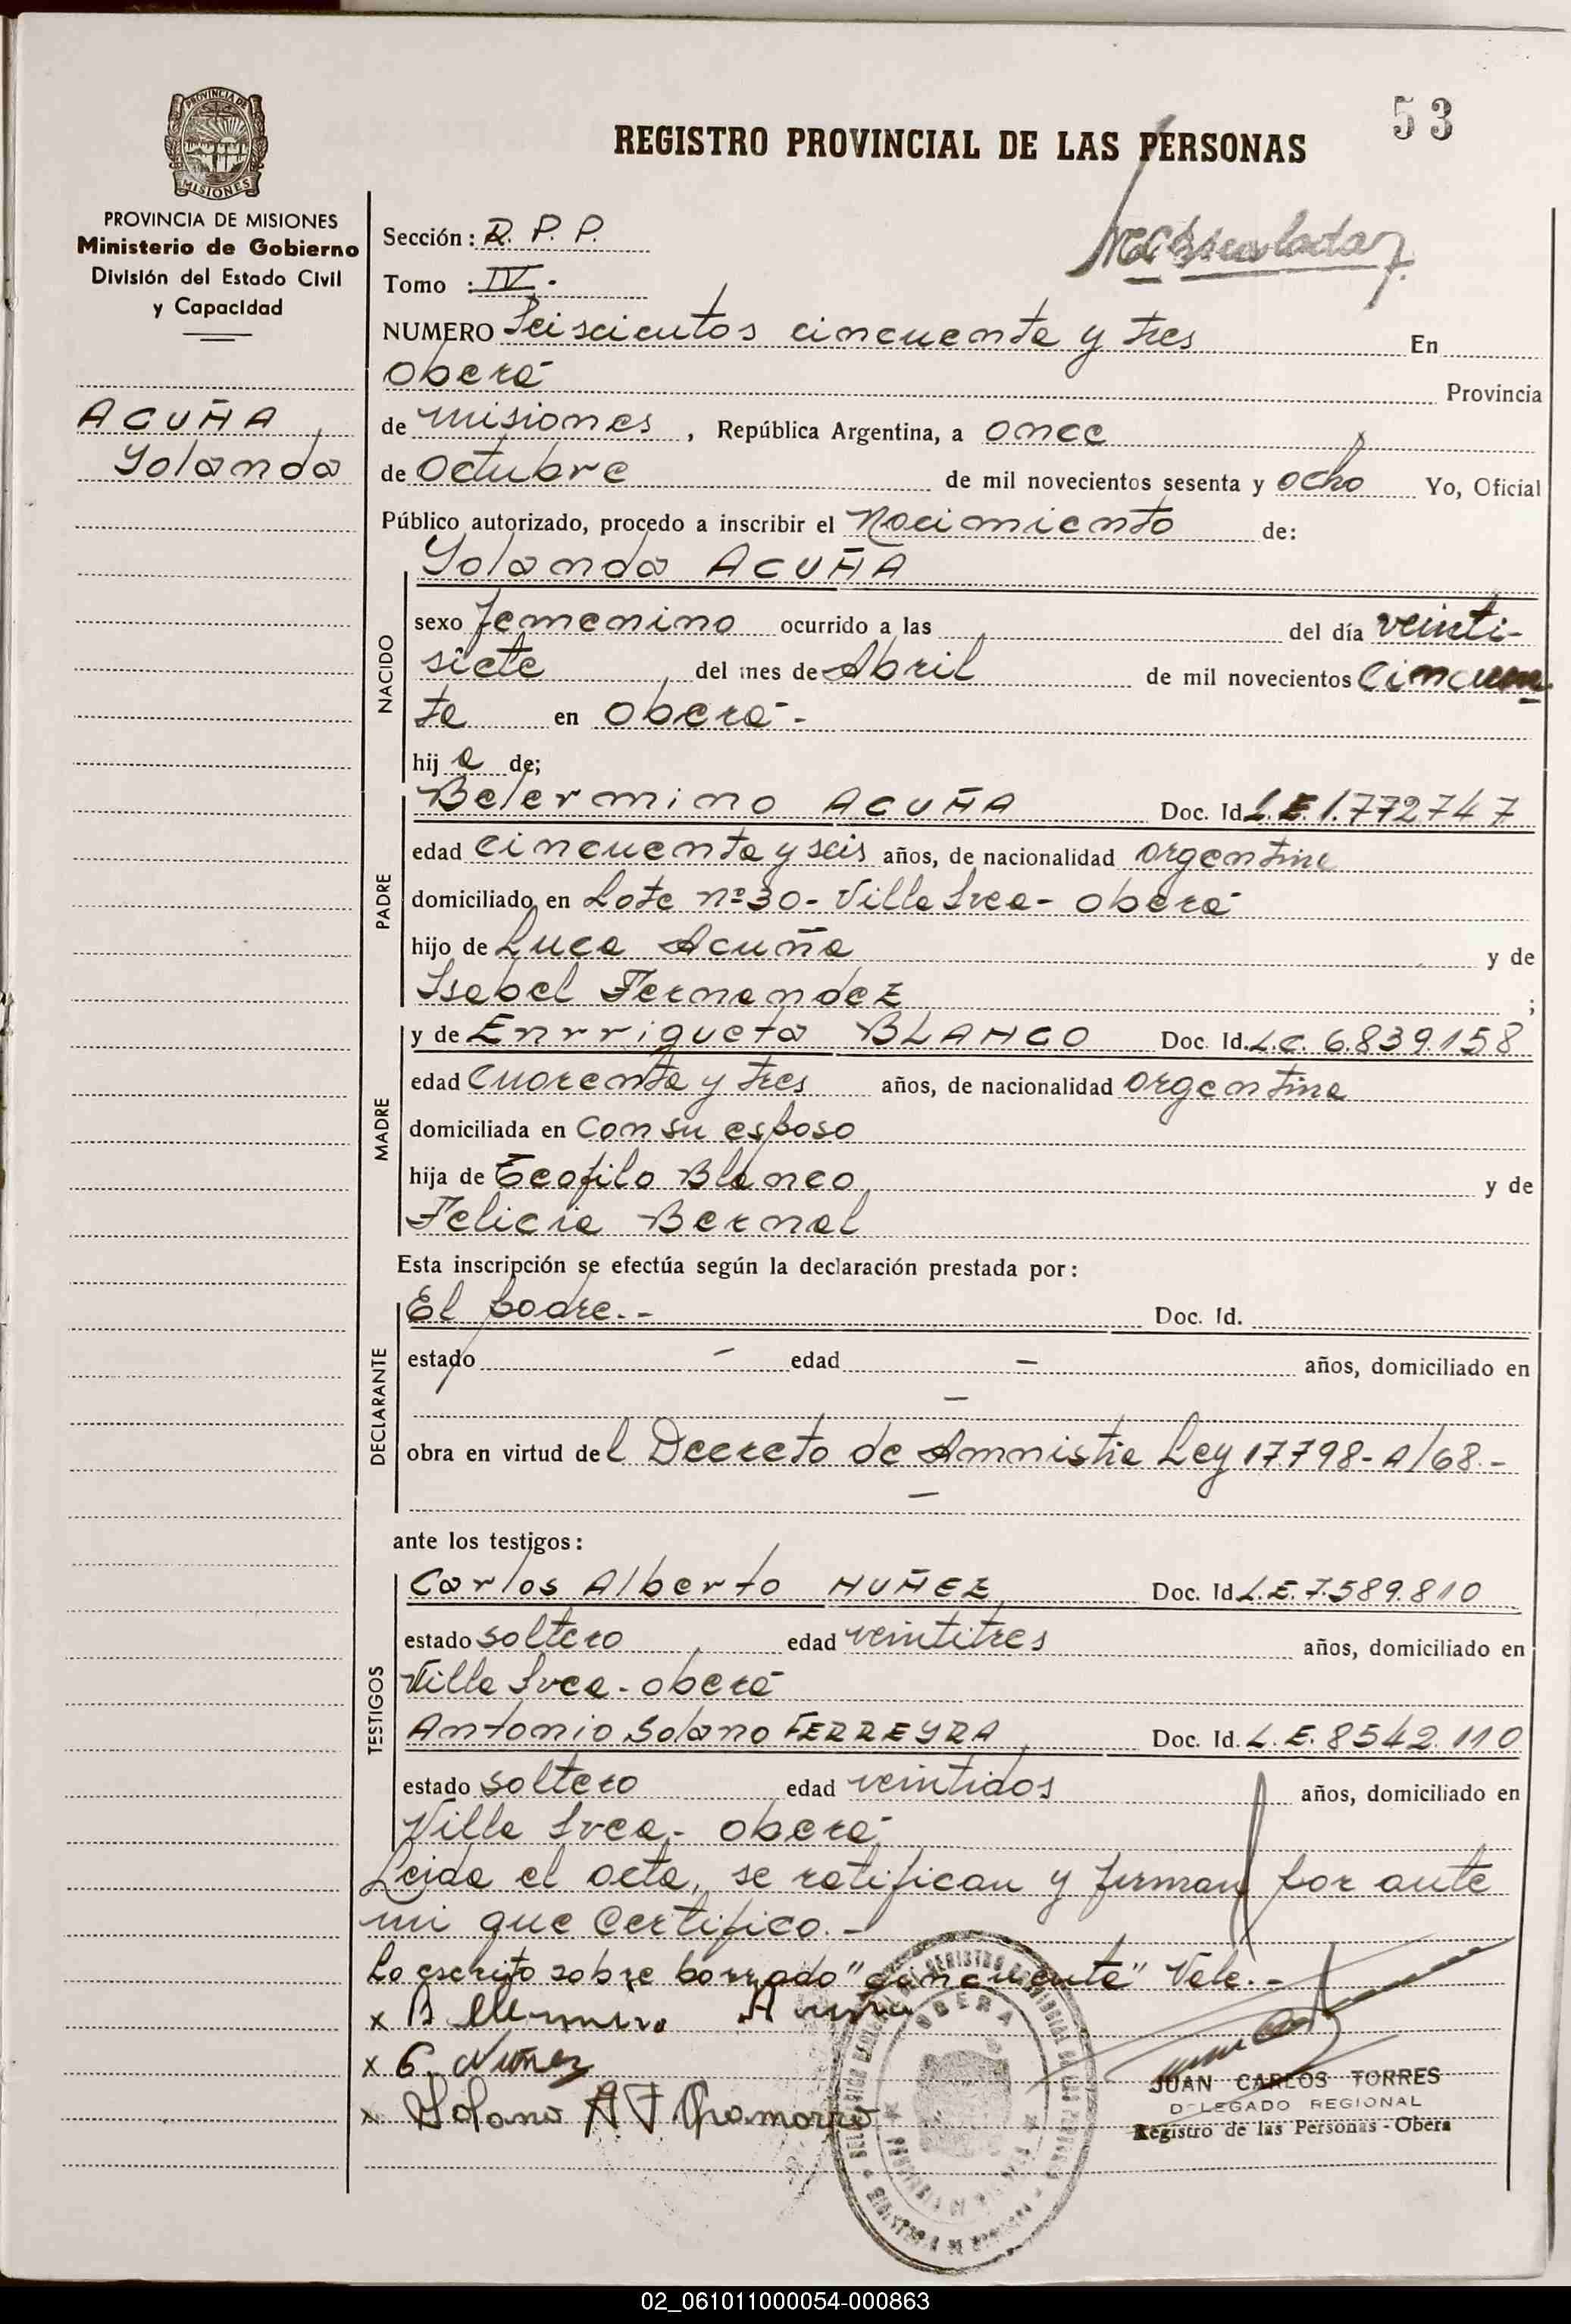 53
REGISTRO PROVINCIAL DE LAS PERSONAS
PROVINCIA DE MISIONES
Ministerio de Gobierno
División del Estado Civil
y Capacidad
ACUÑA
Yolanda
Sección: R. P. P.
Tomo : IV.-
NUMERO Seiscientos cincuenta y tres En
Oberá Provincia
de Misiones, República Argentina, a once
de Octubre de mil novecientos sesenta y ocho Yo, Oficial
Público autorizado, procedo a inscribir el Nacimiento de:
Yolanda ACUÑA
NACIDO
sexo femenino ocurrido a las del día veinti-
siete del mes de Abril de mil novecientos cincuen
ta en Oberá-
hija de;
PADRE
Belermino ACUÑA Doc. Id L.E. 1.772747
edad cincuenta y seis años, de nacionalidad argentina
domiciliado en Lote nº 30- Villa Svea- Oberá
hijo de Luca Acuña y de
Isabel Fernandez ;
MADRE
y de Enrriqueta BLANCO Doc. Id. L.C. 6.839.158
edad cuarenta y tres años, de nacionalidad argentina
domiciliada en con su esposo
hija de Teofilo Blanco y de
Felicia Bernal
Esta inscripción se efectúa según la declaración prestada por:
DECLARANTE
El padre.- Doc. Id.
estado - edad - años, domiciliado en
-
obra en virtud del Decreto de Amnistia Ley 17798-A/68.-
-
ante los testigos:
TESTIGOS
Carlos Alberto NUÑEZ Doc. Id L.E. 7.589.810
estado soltero edad veintitres años, domiciliado en
Villa Svea- Oberá
Antonio Solano FERREYRA Doc. Id. L.E. 8542.110
estado soltero edad veintidos años, domiciliado en
Villa Svea- Oberá
Leida el acta, se ratifican y firman por ante
mi que certifico.-
Lo escrito sobre borrado "cincuenta" Vale.-
x
x C. Nuñez
x Solano
OBERA
JUAN CARLOS TORRES
DELEGADO REGIONAL
Registro de las Personas - Oberá
02_061011000054-000863